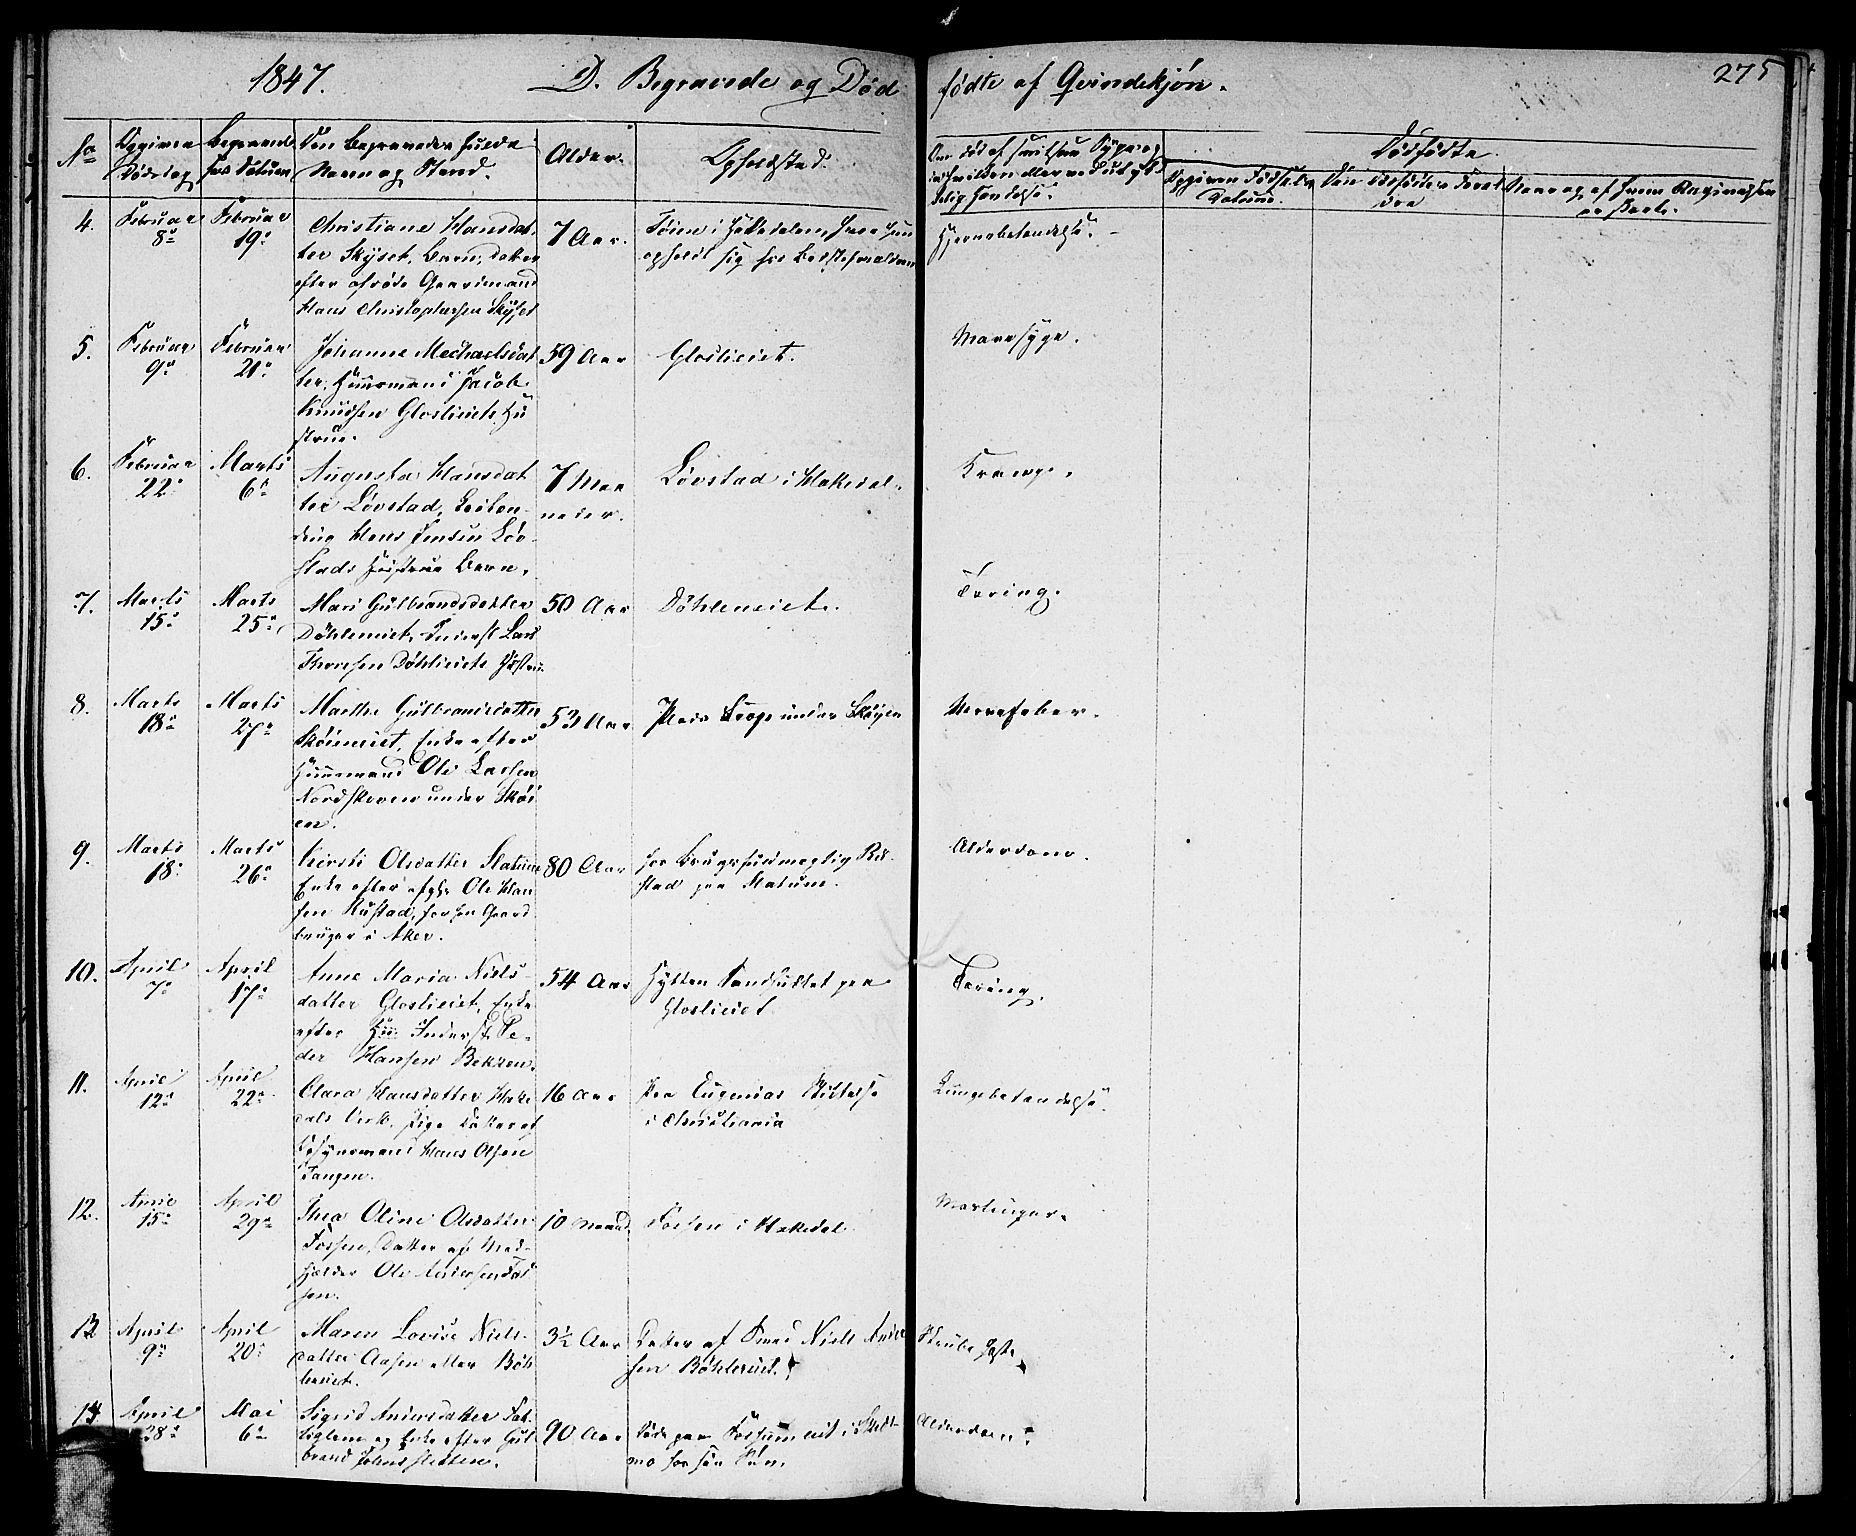 1847. D. Begravede og Død
fødte af Qvindekjøn. 275
No
Opgiven
Dødsdag
Begravel
ses Datum
Den Begravedes fulde
Navn og Stand.
Alder.
Opholdssted.
Dødfødte.
Opgiven Fødsels
Datum.
Den Dødfødtes Foræl
dre
4. Februar
8de
Februar
19de
Christiane Hansdat
ter Skyset, Barn, datter
efter afdøde Gaardmand
Hans Christophersen Skyset
7 Aar.
i Hakedalen, hvor hun
opholdt sig hos Bedsteforældrene
Hjernebetændelse.
5. Februar
9de
Februar
21de
Johanne Mechaelsdat
ter, Huusmand Jacob
Knudsen Gloslieiets Hu
strue.
59 Aar
Gloslieiet.
Mavesyge.
6. Februar
22de
Marts
6te
Augusta Hansdat
ter Løvstad,
Hans Jensen Løv-
stads Hustrue Barn.
7 Maa
neder.
Løvstad i Hakedal.
Krampe.
7. Marts
15de
Marts
25de
Mari Gulbrandsdatter
Døhleneiet, Inderst Lars
Thoresen Døhlieiets Hustrue
50 Aar
Døhleneiet.
Tæring.
8. Marts
18de
Marts
27de
Marthe Gulbrandsdatter
Skøieneiet, Enke efter
Huusmand Ole Larsen
Nordskoven under Skøi
en.
53 Aar
Plads under Skøyen
Nervefeber.
9. Marts
18de
Marts
26de
Kirsti Olsdatter Slatum
Enke efter Ole Han
sen Rustad, Gaard
bruger i Aker.
80 Aar
hos Brugsfuldmægtig Ru
stad paa Slatum.
Alderdom.
10. April
7de
April
17de
Anne Maria Niels
datter Gloslieiet, Enke
efter Inderst Pe-
der Hansen Bekken.
54 Aar
Hytten paa
Gloslieiet
Tæring.
11. April
12de
April
22de
Clara Hansdatter Hake
dals Verk, Pige Datter af
Opsynsmand Hans Olsen
Tangen.
16 Aar
Paa Eugenias Stiftelse
i Christiania
Lungebetændelse.
12. April
15de
April
29de
Thea Oline Olsdatter
Fossen, Datter af Med-
hjælder Ole Andersen Fos
sen.
10 Maaned
Fossen i Hakedal
Mæslinger.
13 April
9de
April
20de
Maren Lovise Niels-
datter Aasen eller Bøh
lereiet.
3½ Aar
Datter af Smed Niels Ander
sen Bøhlereiet.
Strubehoste.
14 April
28de
Mai
6te
Sigrid Andersdatter
Enke efter Gul
brand
90 Aar
Døde paa i Skedt
mo hos sin Søn.
Alderdom.